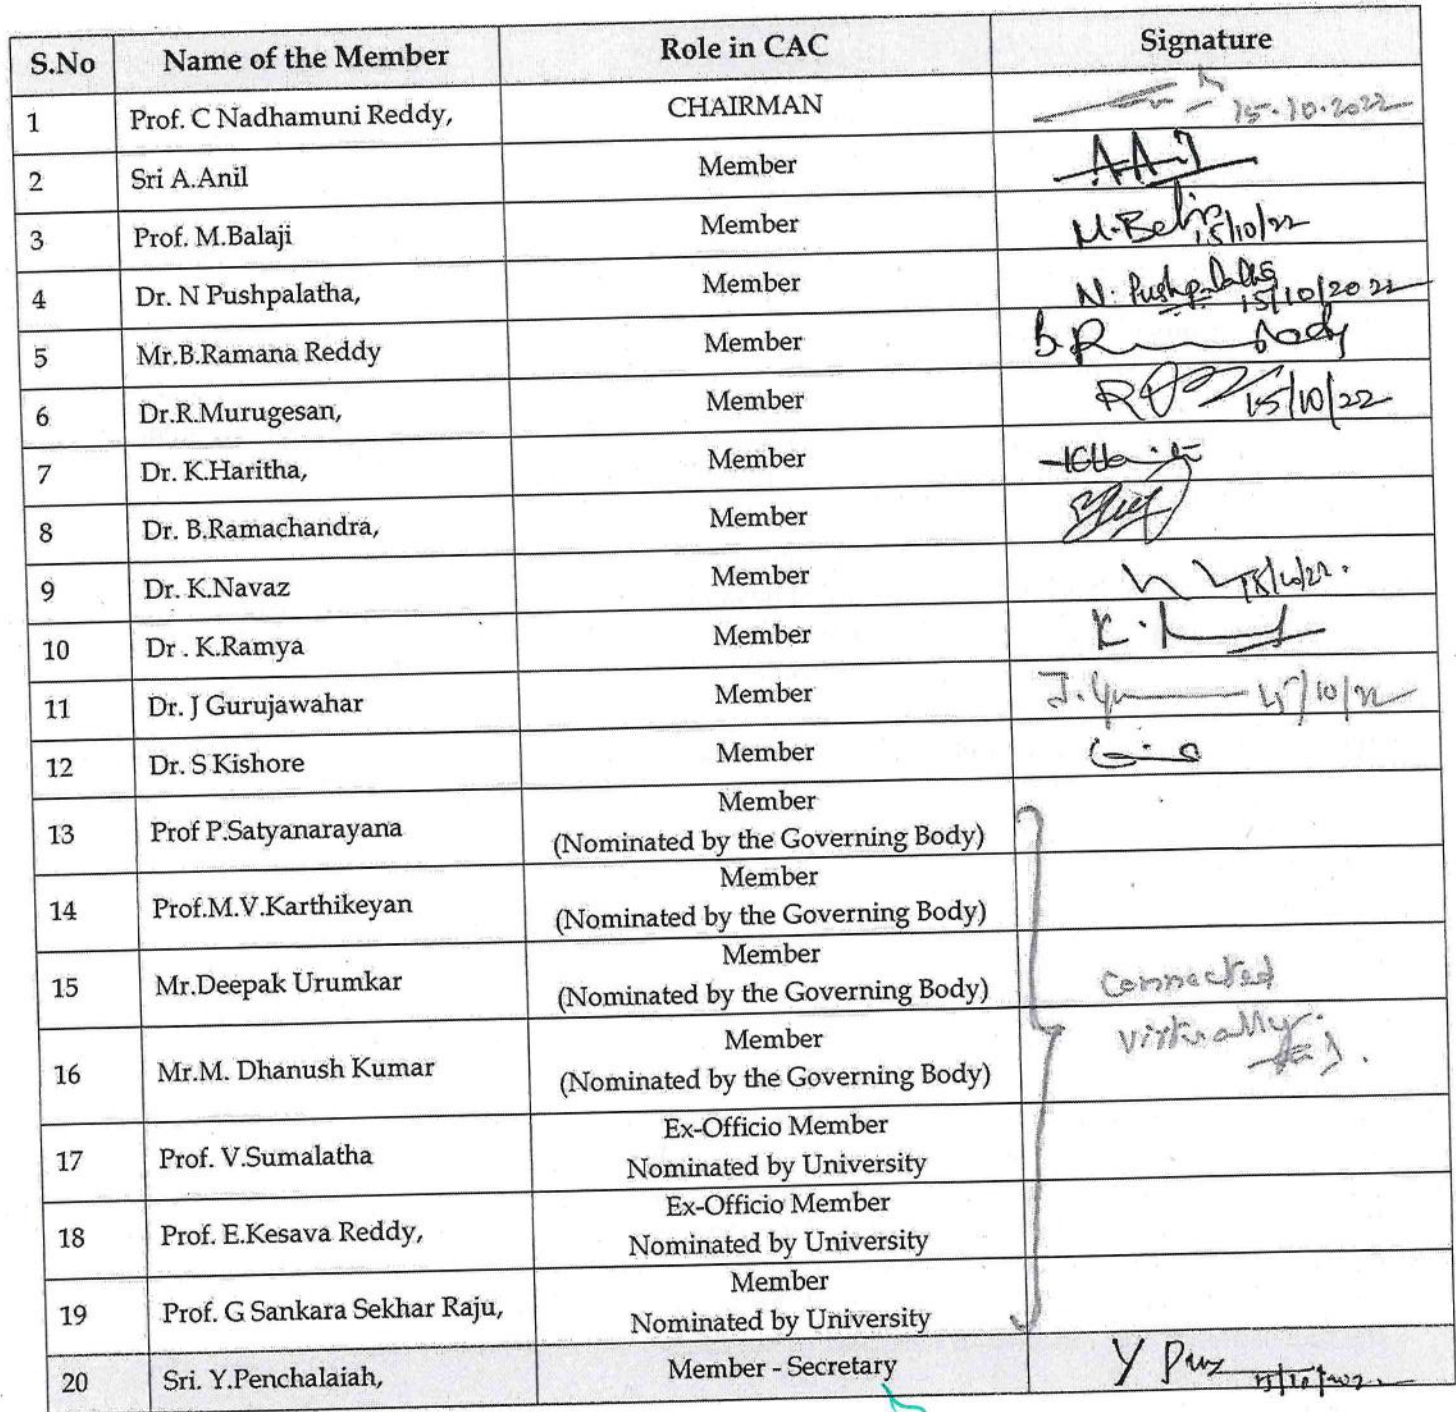 S.No Name of the Member Role in CAC Signature
1 Prof. C Nadhamuni Reddy, CHAIRMAN 15-10-2022
2 Sri A.Anil Member
3 Prof. M.Balaji Member M.Balaji 15/10/22
4 Dr. N Pushpalatha, Member N. Pushpalatha 15/10/2022
5 Mr.B.Ramana Reddy Member
6 Dr.R.Murugesan, Member 15/10/22
7 Dr. K.Haritha, Member
8 Dr. B.Ramachandra, Member
9 Dr. K.Navaz Member 15/10/22.
10 Dr . K.Ramya Member
11 Dr. J Gurujawahar Member 15/10/22
12 Dr. S Kishore Member
13 Prof P.Satyanarayana Member
(Nominated by the Governing Body)
14 Prof.M.V.Karthikeyan Member
(Nominated by the Governing Body)
15 Mr.Deepak Urumkar Member
(Nominated by the Governing Body)
Connected
virtually.
16 Mr.M. Dhanush Kumar Member
(Nominated by the Governing Body)
17 Prof. V.Sumalatha Ex-Officio Member
Nominated by University
18 Prof. E.Kesava Reddy, Ex-Officio Member
Nominated by University
19 Prof. G Sankara Sekhar Raju, Member
Nominated by University
20 Sri. Y.Penchalaiah, Member - Secretary